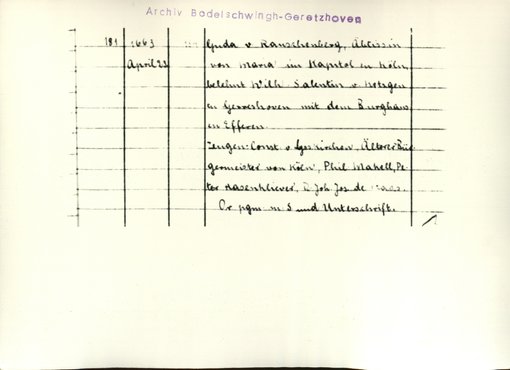 Archiv Bodelschwingh-Geretzhoven
181 1663 Guda v. Rauschenberg, Äbtissin
April 23 von Maria im Kapitol in Köln
belehnt Wilh. Salentin v.
in Gereshoven mit dem Burghaus
in Efferen.
Zeugen: Const. v. Lyskirchen, Älterer Bür
germeister von Köln, Phil. Pe-
ter Joh. Jos. de
Or. pgm. m. S. und Unterschrift.